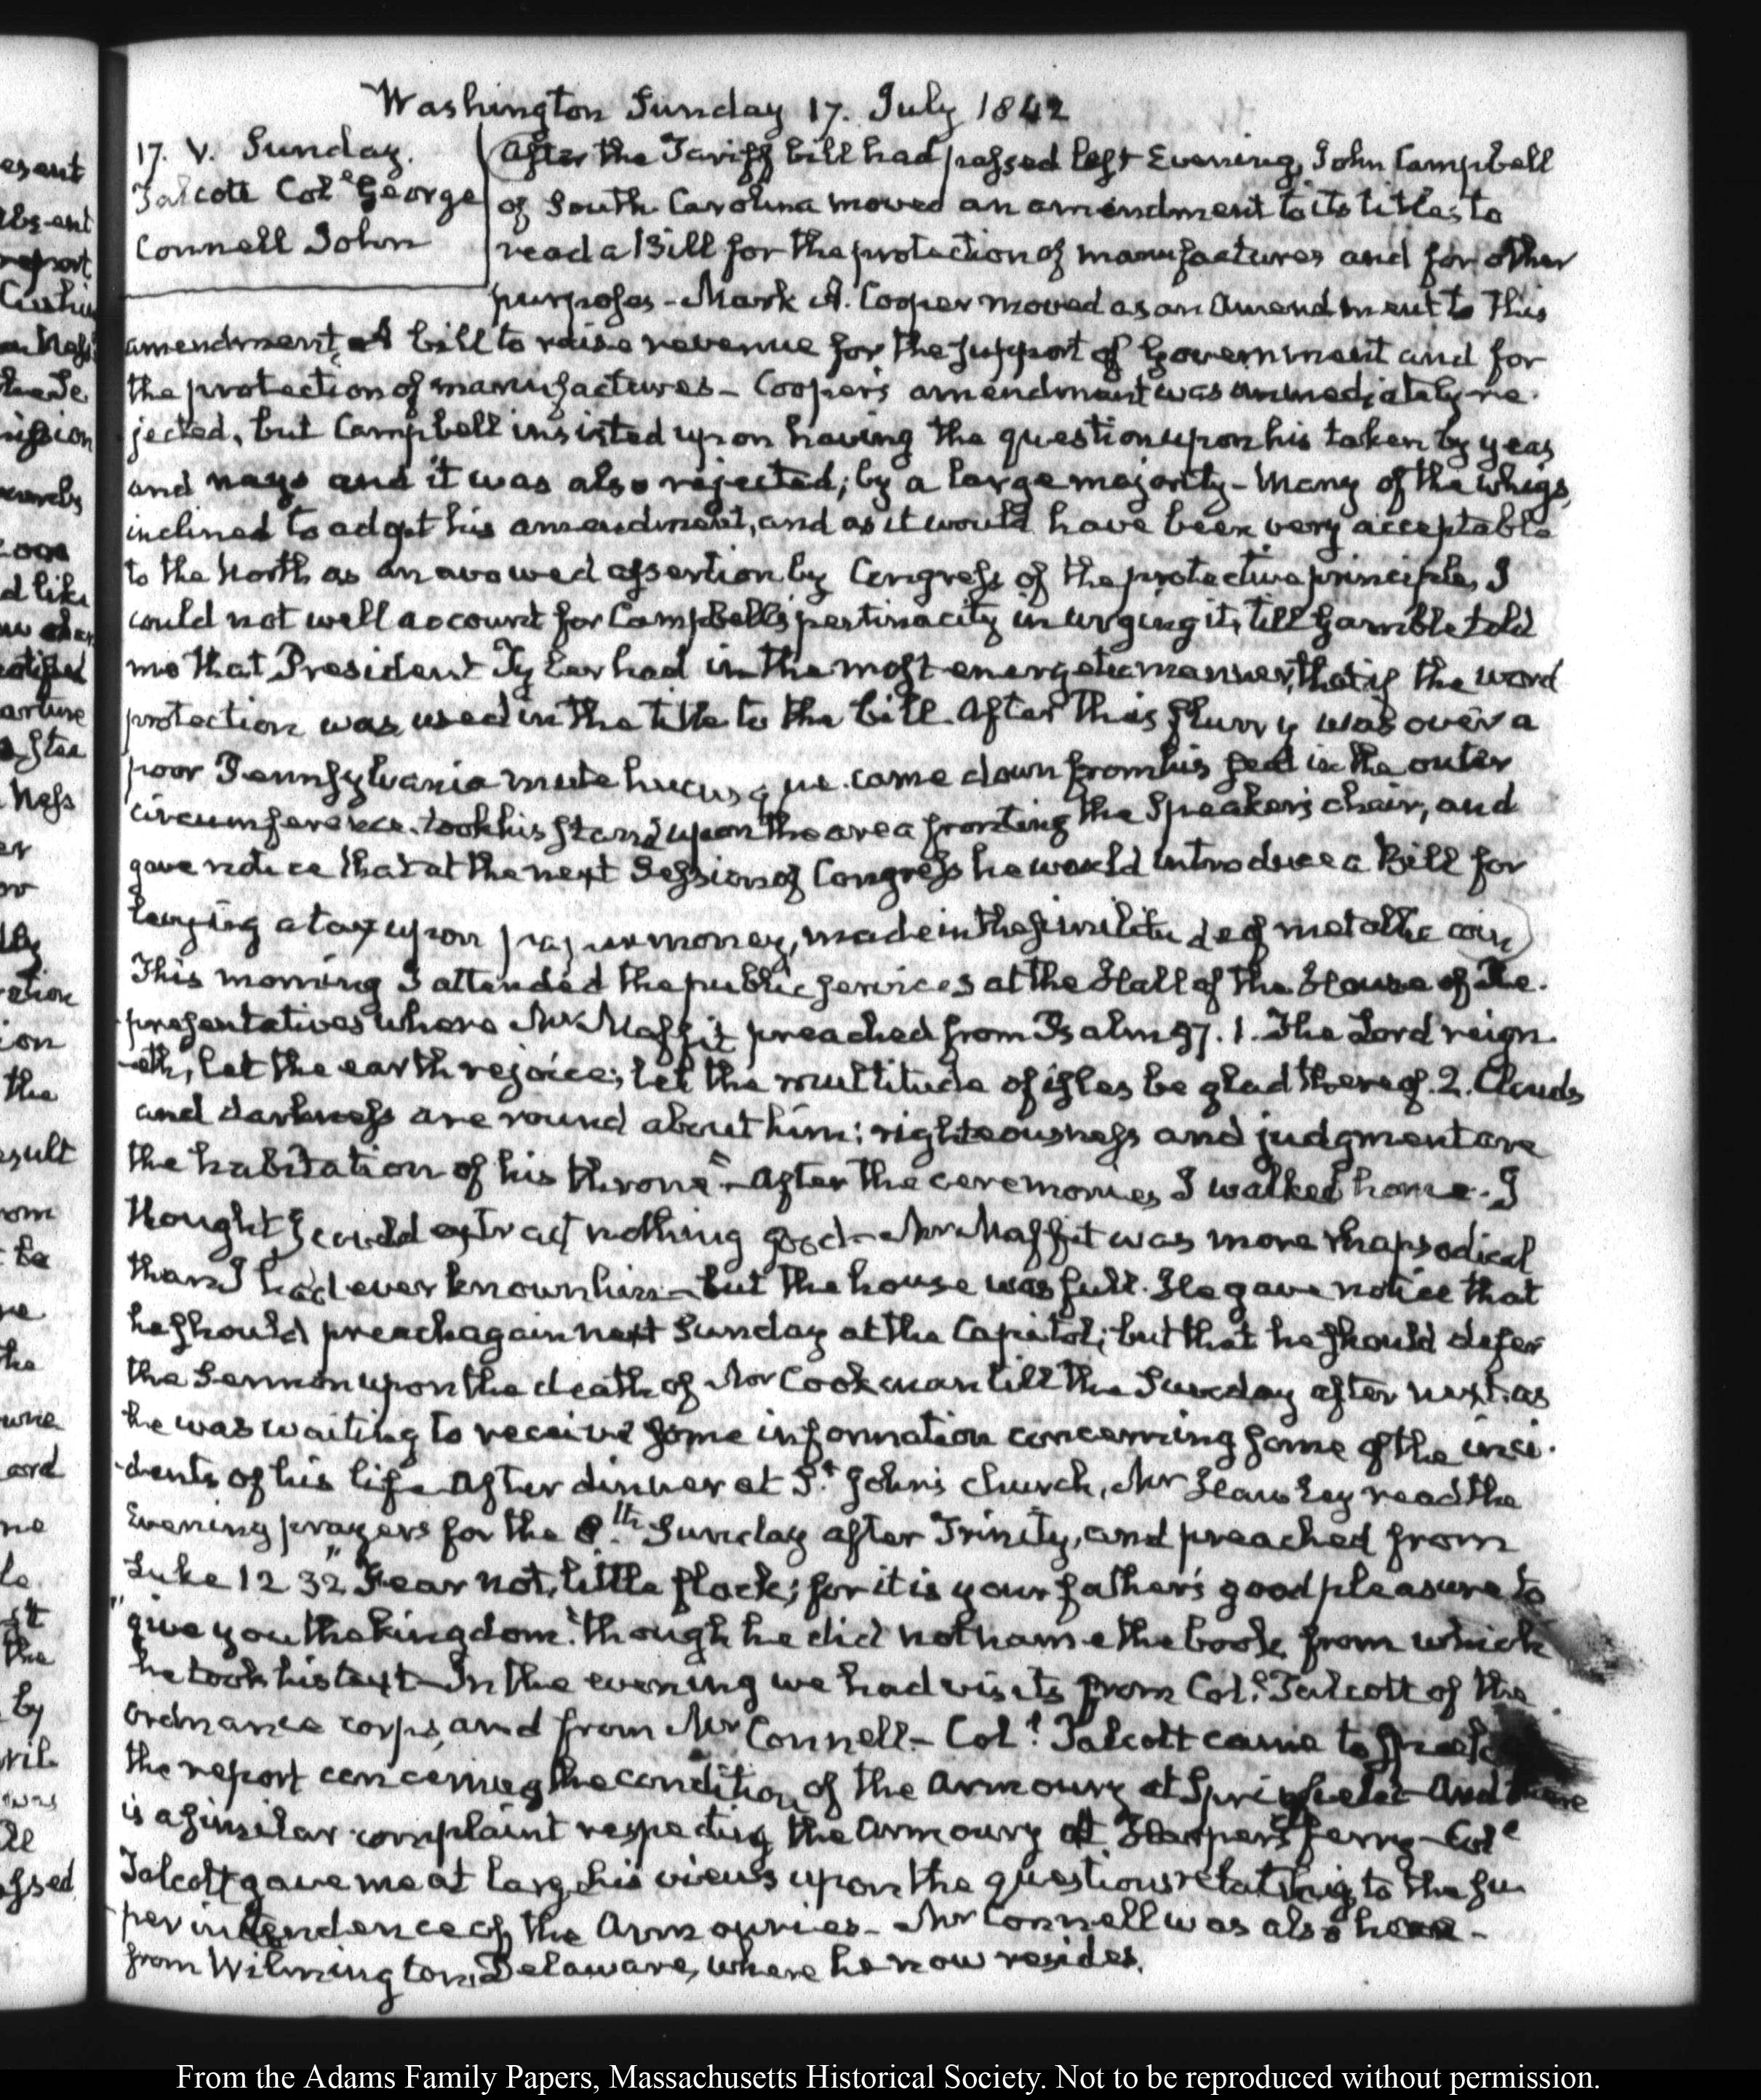 Washington Sunday 17. July 1842
17. V. Sunday.
Talcott Col.l George
Connell John
After the Tariff bill had passed last Evening, John Campbell
of South Carolina moved an amendment to its title; to
read a Bill for the protection of manufactures and for other
purposes - Mark A. Cooper moved as an Amendment to this
amendment, A bill to raise revenue for the support of Government and for
the protection of manufactures - Cooper's amendment was immediately re-
jected, but Campbell insisted upon having the question upon his taken by yeas
and nays and it was also rejected; by a large majority - Many of the whigs
inclined to adopt his amendment, and as it would have been very acceptable
to the North as an avowed assertion by Congress of the protective principle, I
could not well account for Campbell's pertinacity in urging it, till Gamble told
me that President Tyler had in the most energetic manner, that if the word
protection was used in the title to the bill. After this flurry was over a
poor Pennsylvania mute came down from his seat in the outer
circumference, took his stand upon the area fronting the Speaker's chair, and
gave notice that at the next Session of Congress he would introduce a Bill for
laying a tax upon paper money, made in the similitude of metallic coin)
This morning I attended the public services at the Hall of the House of Re-
-presentatives where Mr Maffit preached from Psalm 97. 1. The Lord reign-
-eth, let the earth rejoice; let the multitude of isles be glad thereof. 2. Clouds
and darkness are round about him: righteousness and judgment are
the habitation of his throne" - After the ceremonies, I walked home. I
thought I could extract nothing good - Mr Maffit was more rhapsodical
than I had ever known him - but the house was full. He gave notice that
he should preach again next Sunday at the Capitol; but that he should defer
the Sermon upon the death of Mr Cookman till the Sunday after next. as
he was waiting to receive some information concerning some of the inci-
-dents of his life. After dinner at St. John's church, Mr Hawley read the
Evening prayers for the 8th. Sunday after Trinity, and preached from
Luke 12 32 "Fear not, little flock; for it is your father's good pleasure to
"give you the kingdom." though he did not name the book from which
he took his text - In the evening we had visits from Col.l Talcott of the
Ordnance corps, and from Mr Connell. - Col.l Talcott came to
the report concerning the condition of the Armoury at Springfield - And there
is a similar complaint respecting the Armoury at Harper's ferry - Col.l
Talcott gave me at large his views upon the questions relating to the su-
-perintendence of the Armouries - Mr Connell was also here -
from Wilmington, Delaware, where he now resides.
From the Adams Family Papers, Massachusetts Historical Society. Not to be reproduced without permission.